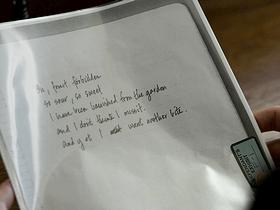 fruit forbidden
so sour, so sweet
I have been banished from the garden
and I don't think I miss it.
and yet I want another bite.